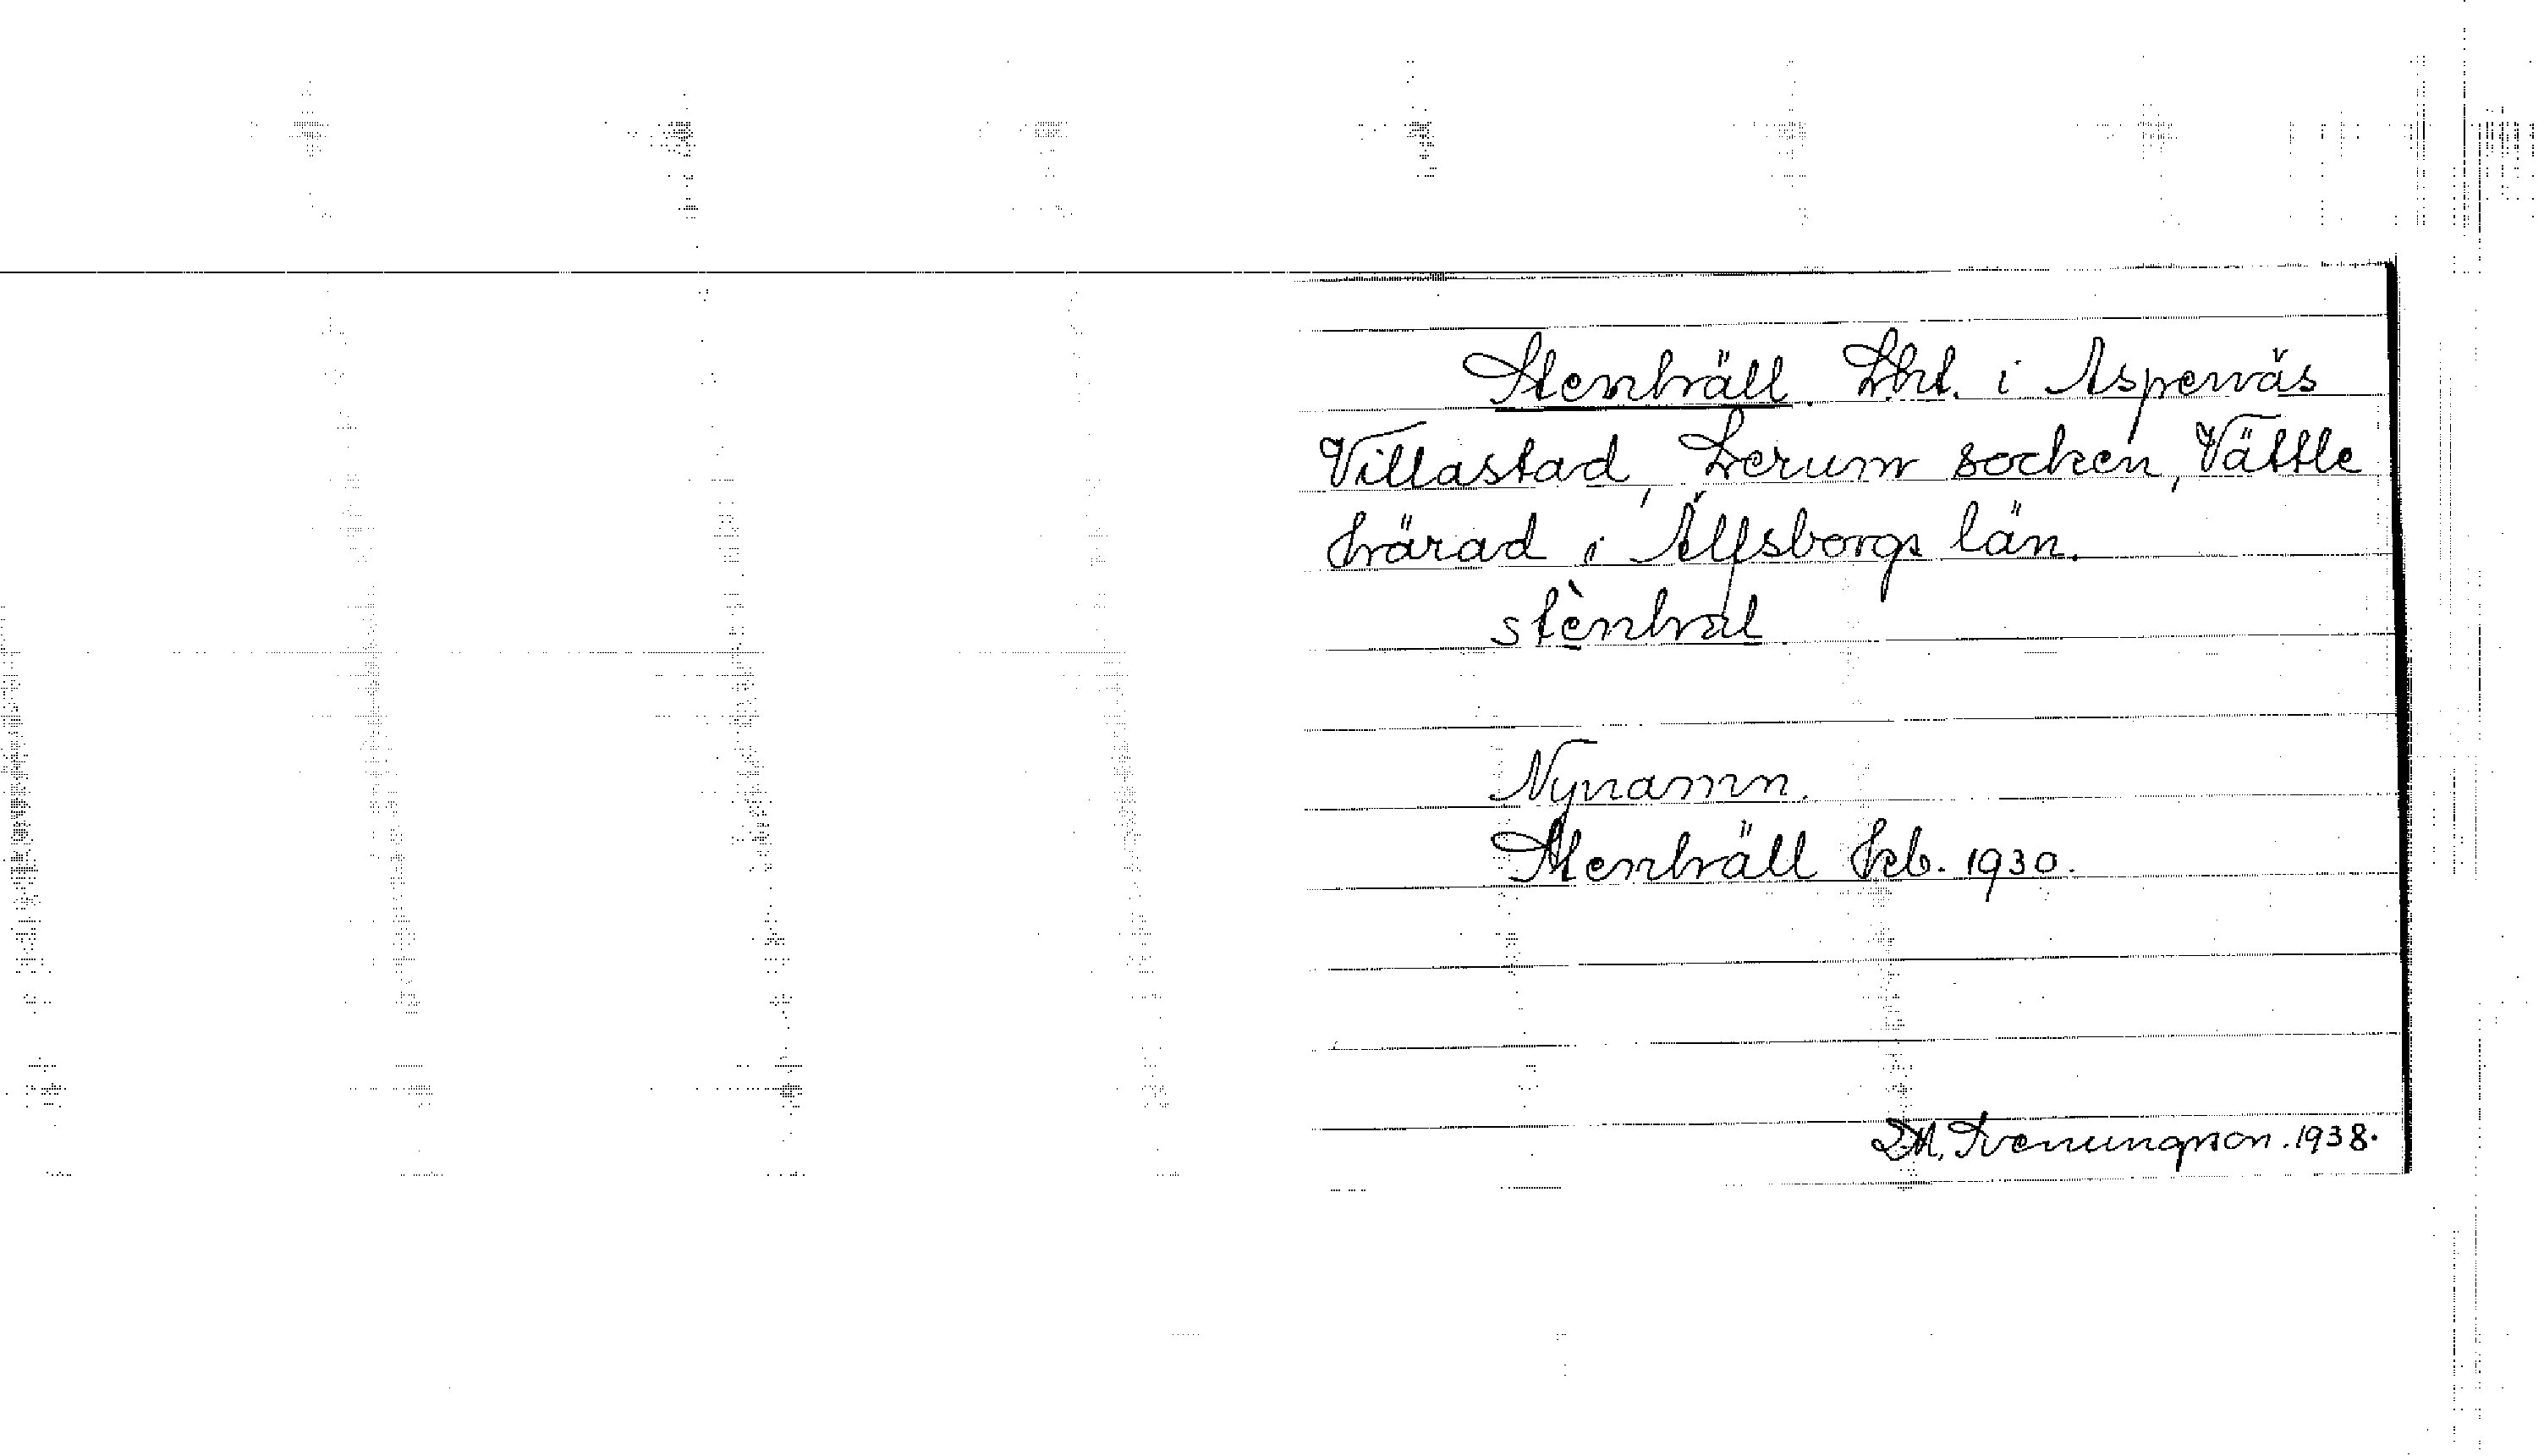 Stenhäll. Lht. i Aspenäs
Villastad, Lerum socken, Vättle
härad i Älfsborgs län.
stènhal
Nynamn.
Stenhäll Jrb. 1930.
Svenungsson. 1938.